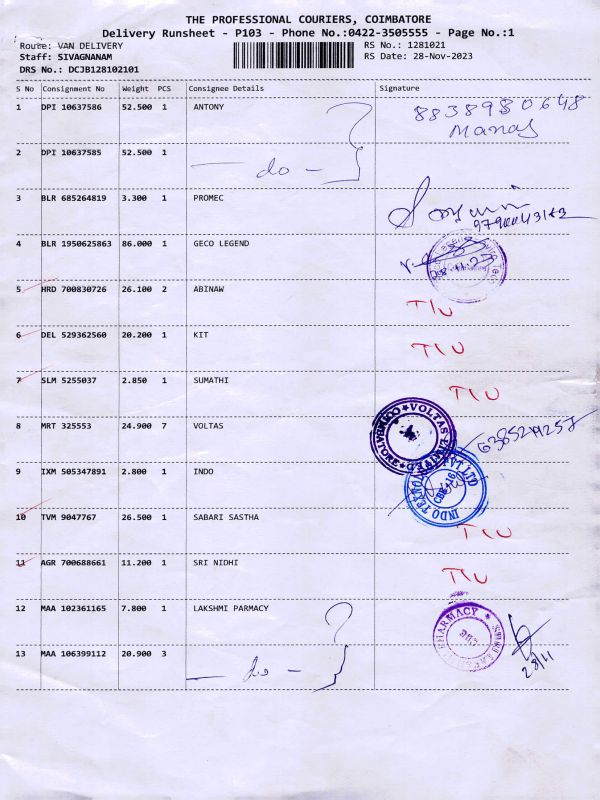 THE PROFESSIONAL COURIERS, COIMBATORE
Delivery Runsheet - P103 - Phone No.:0422-3505555 - Page No.:1
Route: VAN DELIVERY RS No.: 1281021
Staff: SIVAGNANAM RS Date: 28-Nov-2023
DRS No.: DCJB128102101
S No Consignment No Weight PCS Consignee Details Signature
1 DPI 10637586 52.500 1 ANTONY 8838980648
Manas
2 DPI 10637585 52.500 1 — do —
3 BLR 685264819 3.300 1 PROMEC
4 BLR 1950625863 86.000 1 GECO LEGEND
5 HRD 700830726 26.100 2 ABINAW TIU
6 DEL 529362560 20.200 1 KIT TIU
7 SLM 5255037 2.850 1 SUMATHI TIU
8 MRT 325553 24.900 7 VOLTAS VOLTAS
9 IXM 505347891 2.800 1 INDO
10 TVM 9047767 26.500 1 SABARI SASTHA TIU
11 AGR 700688661 11.200 1 SRI NIDHI TIU
12 MAA 102361165 7.800 1 LAKSHMI PARMACY ? PHARMACY
28/11
13 MAA 106399112 20.900 3 — do —